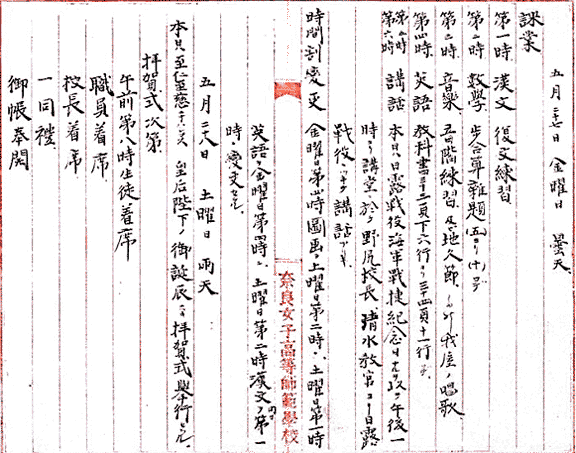 五月二十七日 金曜日 曇天
課業
第一時 漢文 復文練習
第二時 数學 步合算雜題(五)ヨリ(十)マデ
第三時 音樂 五四階練習 及
第四時 英語 教科書三十三頁下六行ヨリ三十四頁十一行マデ
第五時
第六時 講話 本日ハ日露戰役海軍戰捷紀念日ナルヲ以テ午後一
時ヨリ講堂ニ於テ野尻校長、清水教官ヨリ日露
戰役ニツキ講話アリ
時間割變更 金曜日第四時圖画ヲ土曜日第二時ニ、土曜日第一時
英語ヲ金曜日第四時ニ、土曜日第二時漢文ヲ同第一
時ニ変更セル
五月二十八日 土曜日 雨天
本日
皇后陛下ノ御誕辰ニツキ拜賀式擧行セラル
拜賀式次第
午前第八時生徒着席
職員着席
校長着席
一同禮
御帳奉開
奈良女子高等師範學校